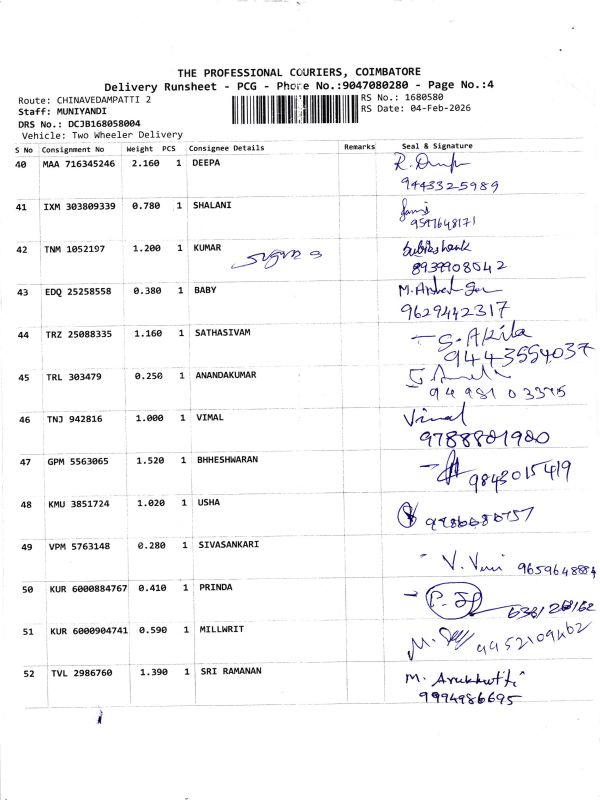 THE PROFESSIONAL COURIERS, COIMBATORE
Delivery Runsheet - PCG - Phone No.:9047080280 - Page No.:4
Route: CHINAVEDAMPATTI 2
Staff: MUNIYANDI
DRS No.: DCJB168058004
Vehicle: Two Wheeler Delivery
RS No.: 1680580
RS Date: 04-Feb-2026
S No Consignment No Weight PCS Consignee Details Remarks Seal & Signature
40 MAA 716345246 2.160 1 DEEPA
9443325989
41 IXM 303809339 0.780 1 SHALANI
9597648171
42 TNM 1052197 1.200 1 KUMAR
8939908542
43 EDQ 25258558 0.380 1 BABY
9629442317
44 TRZ 25088335 1.160 1 SATHASIVAM S. Akila
9443554037
45 TRL 303479 0.250 1 ANANDAKUMAR
46 TNJ 942816 1.000 1 VIMAL Vimal
9788801900
47 GPM 5563065 1.520 1 BHHESHWARAN
9843015419
48 KMU 3851724 1.020 1 USHA
49 VPM 5763148 0.280 1 SIVASANKARI
50 KUR 6000884767 0.410 1 PRINDA
51 KUR 6000904741 0.590 1 MILLWRIT
52 TVL 2986760 1.390 1 SRI RAMANAN
9994986695